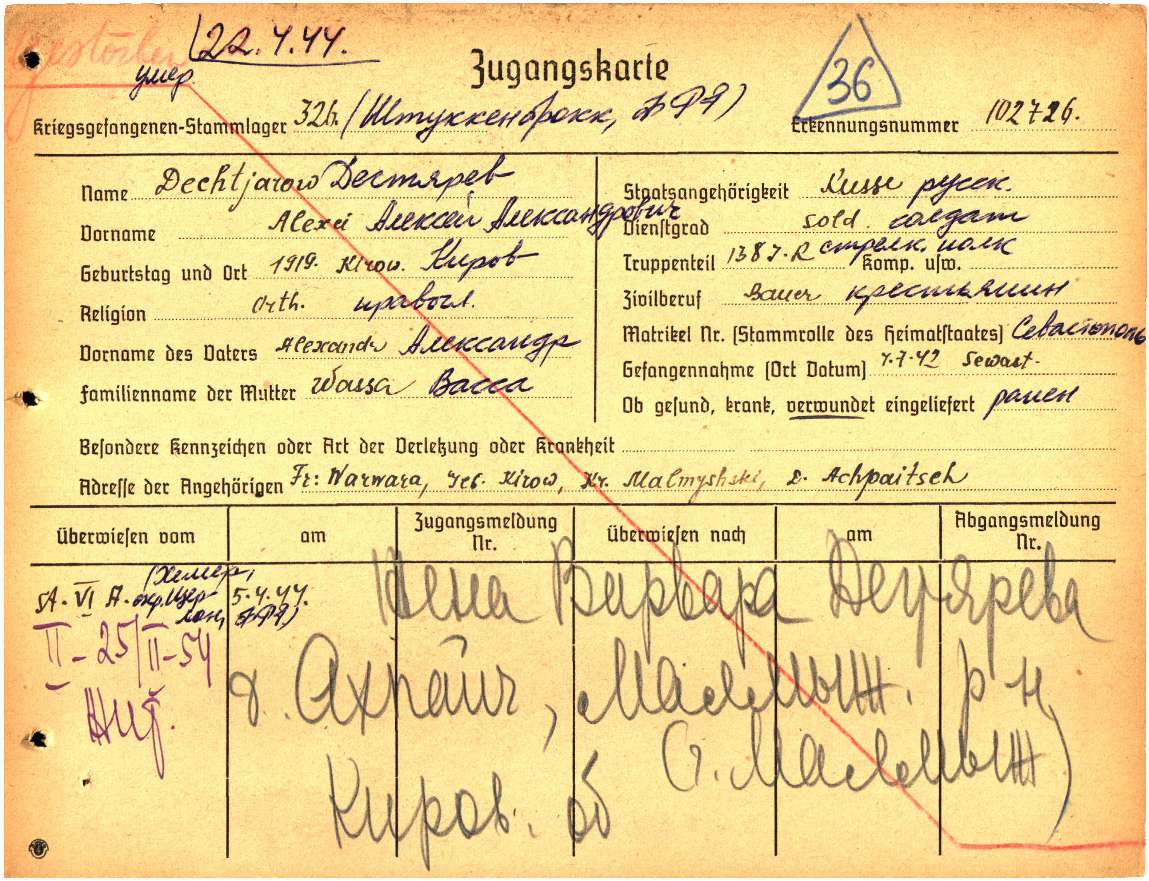 gestorben 22.4.44.
умер.
Zugangskarte
36
Kriegsgefangenen-Stammlager 326. (Штуккенброкк, ФРГ) Erkennungsnummer 102726.
Name Dechtjarow Дегтярев
Staatsangehörigkeit Russe русск.
Vorname Alexei Алексей Александрович
Dienstgrad Sold. солдат
Geburtstag und Ort 1919. Kirow. Киров
Truppenteil 1387. R стрелк. полк Komp. usw.
Religion Orth. правосл.
Zivilberuf Bauer крестьянин
Vorname des Vaters Alexandr Александр
Matrikel Nr. (Stammrolle des Heimatstaates) Севастополь
Familienname der Mutter Wassa Васса
Gefangennahme (Ort Datum) 4.7.42 Sewast.
Ob gesund, krank, verwundet eingeliefert ранен
Besondere Kennzeichen oder Art der Verletzung oder Krankheit
Adresse der Angehörigen Fr: Warwara, Geb. Kirow, Kr. Malmyshski, D. Achpaitsch
Überwiesen vom am Zugangsmeldung Nr. Überwiesen nach am Abgangsmeldung Nr.
(Хемер,
VI A. 5.4.44.
ФРГ)
II-25/II-54
Жена Варвара Дегтярева
д. Ахпайч, Малмыж. р-н
(г. Малмыж)
Киров. об